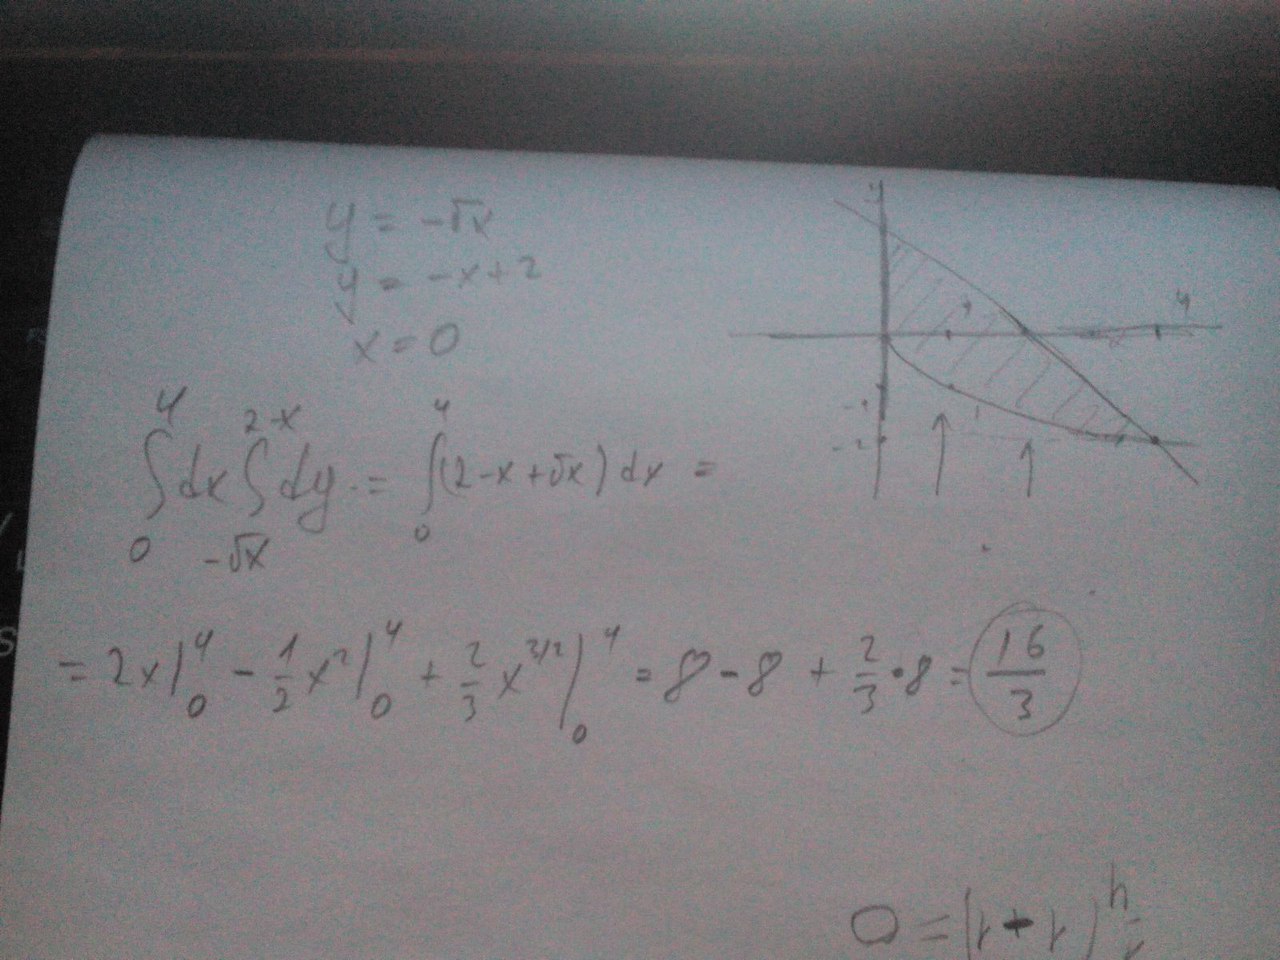 y = -√x
y = -x+2
x = 0
y
1
4
-1
-2
∫₀⁴ dx ∫_{-√x}^{2-x} dy = ∫₀⁴ (2-x+√x) dx =
= 2x|₀⁴ - 1/2 x²|₀⁴ + 2/3 x^{3/2}|₀⁴ = 8-8 + 2/3 · 8 = 16/3